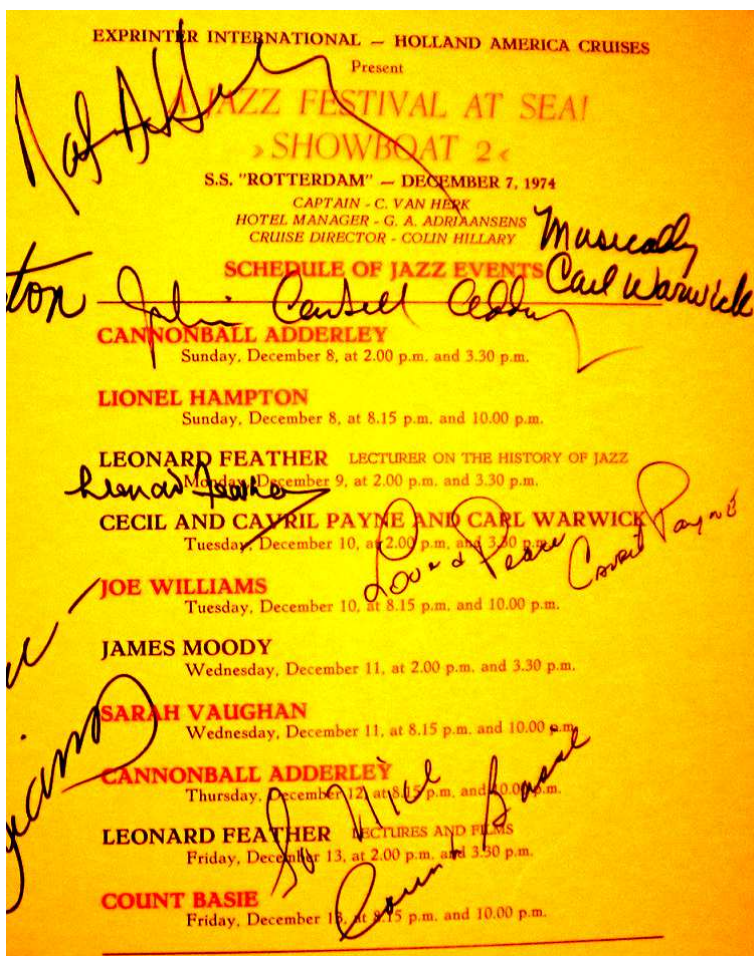 EXPRINTER INTERNATIONAL — HOLLAND AMERICA CRUISES
Present
A JAZZ FESTIVAL AT SEA!
» SHOWBOAT 2 «
S.S. "ROTTERDAM" — DECEMBER 7, 1974
CAPTAIN - C. VAN HERK
HOTEL MANAGER - G. A. ADRIAANSENS
CRUISE DIRECTOR - COLIN HILLARY
Musically
Carl Warwick
SCHEDULE OF JAZZ EVENTS
ton
CANNONBALL ADDERLEY
Sunday, December 8, at 2.00 p.m. and 3.30 p.m.
LIONEL HAMPTON
Sunday, December 8, at 8.15 p.m. and 10.00 p.m.
LEONARD FEATHER LECTURER ON THE HISTORY OF JAZZ
Monday, December 9, at 2.00 p.m. and 3.30 p.m.
Leonard Feather
CECIL AND CAVRIL PAYNE AND CARL WARWICK
Tuesday, December 10, at 2.00 p.m. and 3.30 p.m.
Love & Peace Cavril Payne
JOE WILLIAMS
Tuesday, December 10, at 8.15 p.m. and 10.00 p.m.
JAMES MOODY
Wednesday, December 11, at 2.00 p.m. and 3.30 p.m.
SARAH VAUGHAN
Wednesday, December 11, at 8.15 p.m. and 10.00 p.m.
CANNONBALL ADDERLEY
Thursday, December 12, at 8.15 p.m. and 10.00 p.m.
LEONARD FEATHER LECTURES AND FILMS
Friday, December 13, at 2.00 p.m. and 3.30 p.m.
So Nice
Count Basie
COUNT BASIE
Friday, December 13, at 8.15 p.m. and 10.00 p.m.